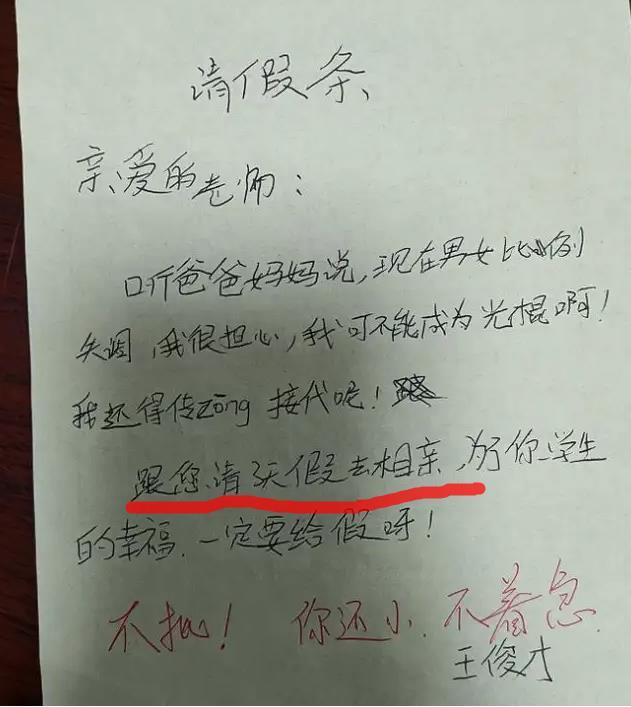 请假条
亲爱的老师：
听爸爸妈妈说，现在男女比例
失调，我很担心，我可不能成为光棍啊！
我还得传zōng接代呢！
跟您请3天假去相亲，为了你学生
的幸福，一定要给假呀！
不批！ 你还小，不着急
王俊才